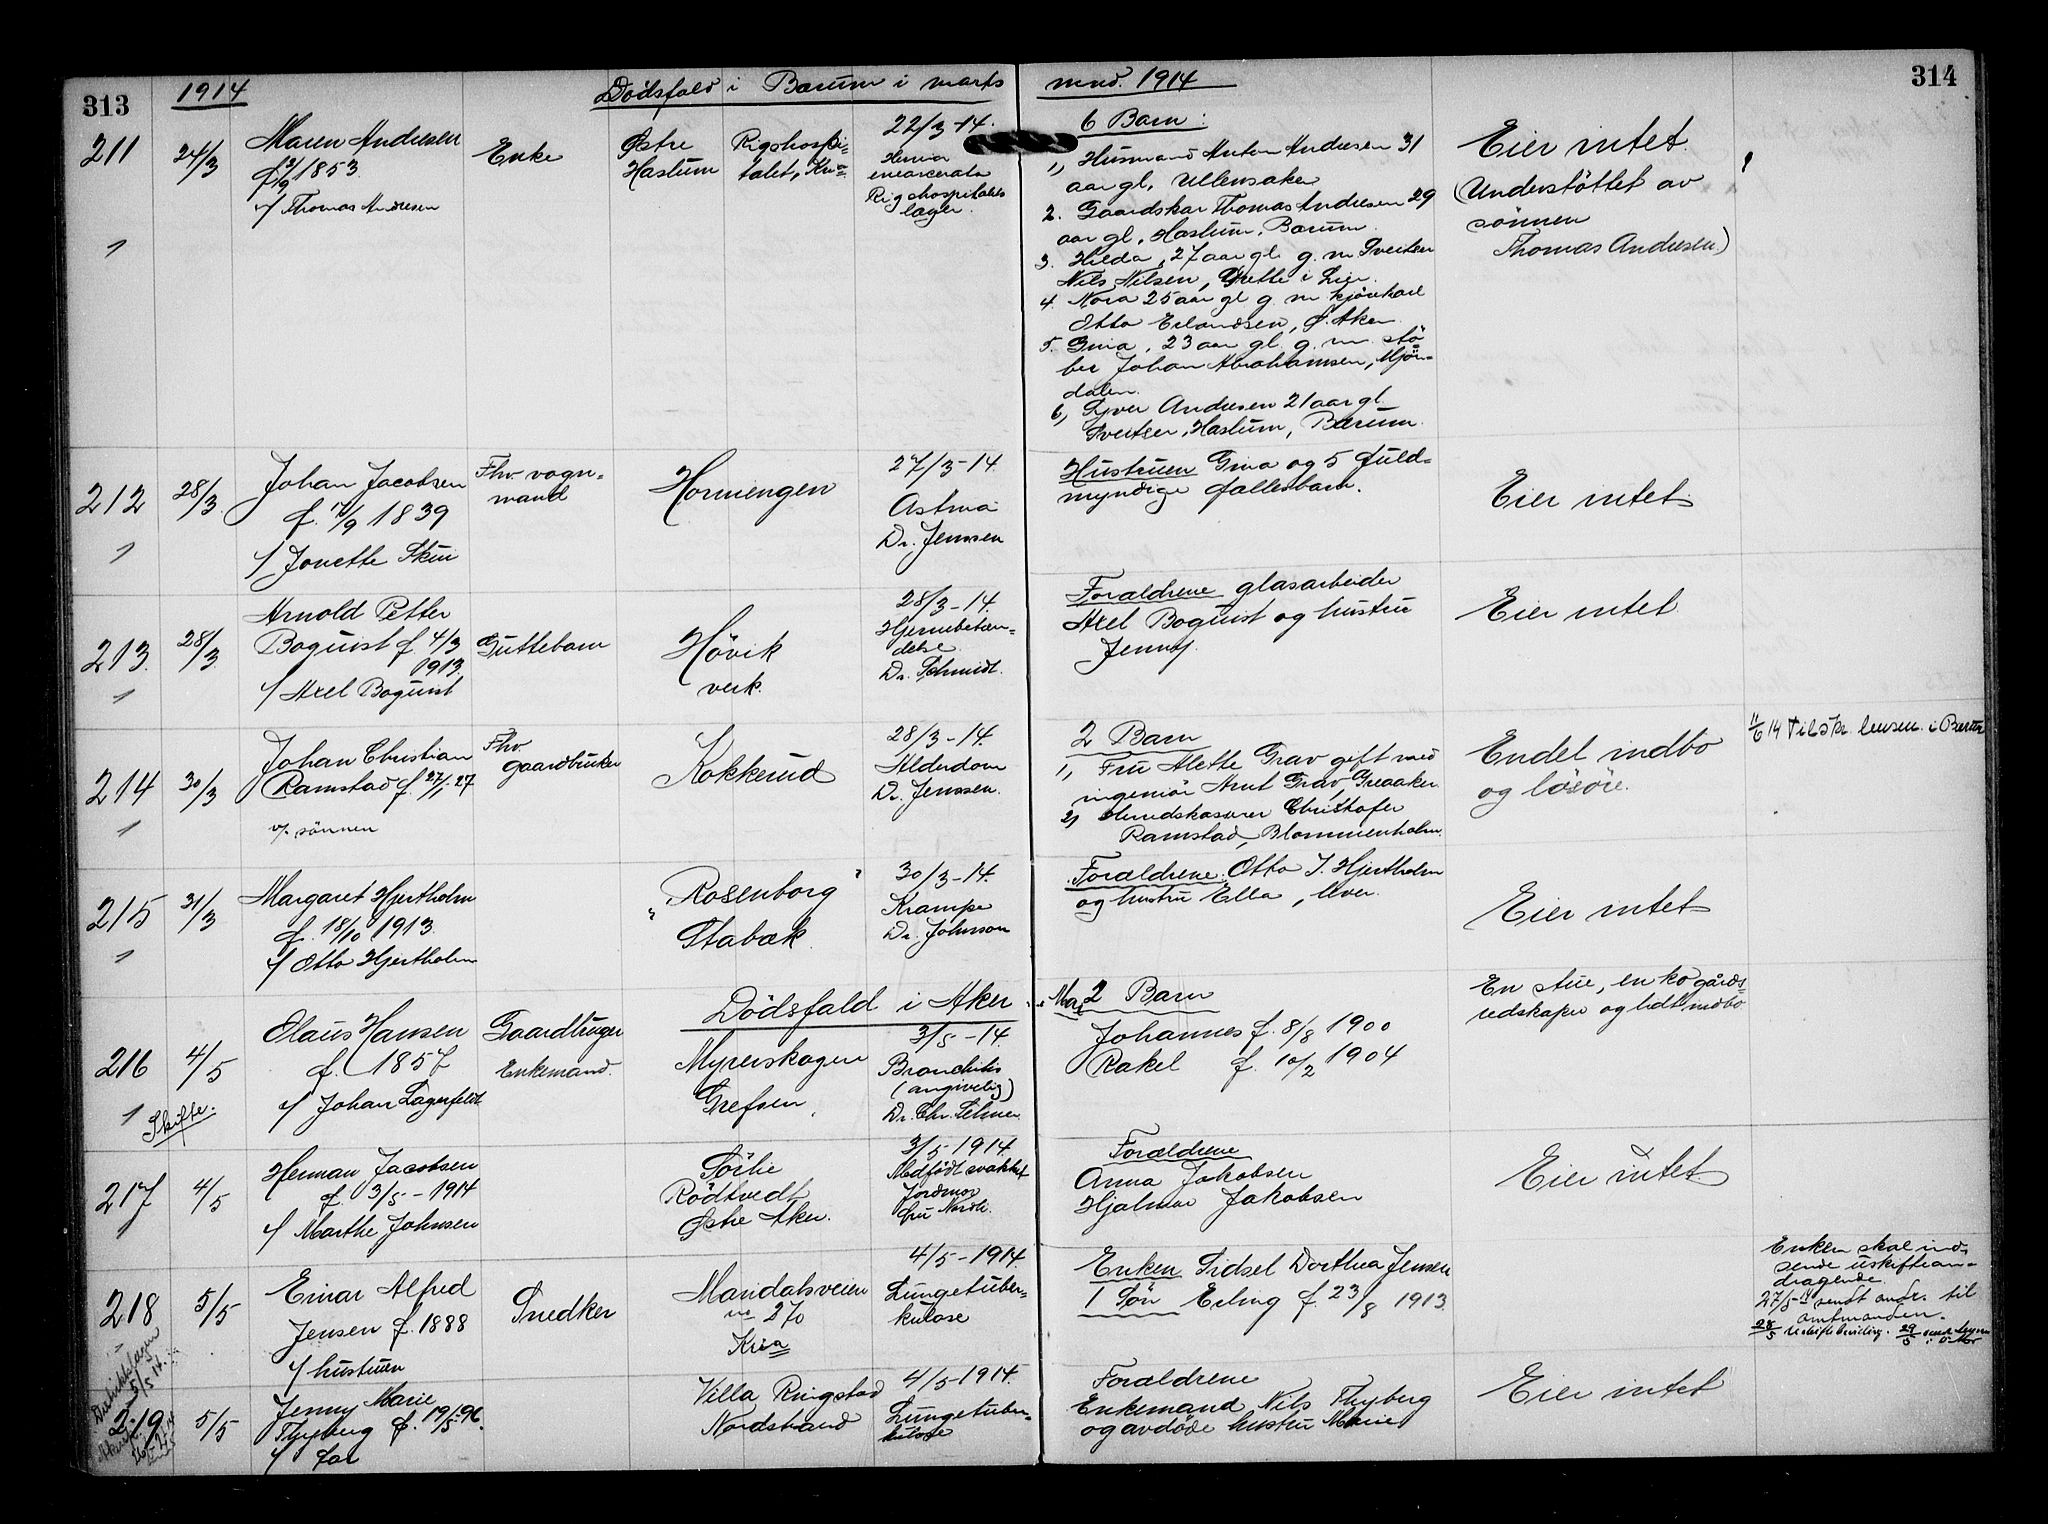 313
1914
Dödsfald i Bærum i marts
mnd. 1914
314
211
24/3
Maren Andresen
f 12/9 1853
v/ Thomas Andresen
Enke
Østre
Haslum
Rigshospi=
talet, Kr.a
22/3-14.
Hernia
incarcerata
Rigshospitalets
læger.
6 Barn:
1, Husmand Anton Andresen 31
aar gl, Ullensaker
2. Gaardskar Thomas Andresen 29
aar gl, Haslum, Bærum.
3. Hilda, 27 aar gl. g. m Sveitser
Nils Nilsen, Gjette i Lier.
4. Nora 25 aar gl g. m kjörekarl
Otto Erlandsen, Ø. Aker.
5. Gina, 23 aar gl. g. m. stö=
ber Johan Abrahamsen, Mjön=
dalen.
6, Syver Andresen 21 aar gl.
Sveitser, Haslum, Bærum.
Eier intet.
(Understöttet av
sönnen
Thomas Andresen)
212
28/3
Johan Jacobsen
f. 1839
v/ Jonette Skui
Fhv. vogn=
mand
Hornengen
27/3-14
Astma
Dr. Jenssen
Hustruen Gina og 5 fuld=
myndige fællesbarn.
Eier intet
213.
28/3
Arnold Petter
Boquist f. 4/3
1913.
v/ Axel Boquist
Guttebarn
Hövik
verk.
28/3-14.
Hjernebetæn=
delse
Dr. Schmidt.
Forældrene glasarbeider
Axel Boquist og hustru
Jenny.
Eier intet
214
30/3
Johan Christian
Ramstad f. 27/1-27
v/ sönnen
Fhv.
gaardbruker
Kokkerud
28/3-14.
Alderdom
Dr. Jenssen.
2 Barn
1, Fru Alette Grav gift med
ingeniör Arnt Grav, Greaaker
2, Herredskasserer Christofer
Ramstad, Blommenholm.
Endel indbo
og lösöre.
11/6 14 Tilskr. lensm. i Bærum
215
31/3
Margaret Hjertholm
f. 18/10 1913.
v/ Otto Hjertholm
"Rosenborg"
Stabæk.
30/3-14.
Krampe
Dr. Johnson
Forældrene: Otto J. Hjertholm
og hustru Ella, lever.
Eier intet
Dödsfald i Aker i Mai
216
4/5
Skifte.
Olaus Hansen
f. 1857
v/ Johan Lagerfeldt
Gaardbruger
Enkemand.
Myrerskogen
Grefsen.
3/5-14.
Bronchitis
(angivelig)
Dr. Chr. Selmer
2 Barn
Johannes f. 8/8 1900
Rakel f. 10/2 1904
En stue, en ko gårds=
redskaper og lidt indbo
217
4/5
Herman Jacobsen
f. 3/5-1914
v/ Marthe Johnsen
Sörlie
Rödtvedt
Østre Aker.
3/5-1914.
Medfödt svakhet
Jordmor
fru Nordli.
Forældrene
Anna Jakobsen
Hjalmar Jakobsen
Eier intet.
218
5/5
Einar Alfred
Jensen f. 1888
v/ hustruen
Snedker
Mandalsveien
no 270
Kr.a
4/5-1914.
Lungetuber=
kulose
Enken Sidsel Dorthea Jensen
1 Sön Erling f. 23/8 1913.
Enken skal ind=
sende uskiftean=
dragende.
27/5-14 sendt andr. til
amtmanden.
28/5 Uskiftebevilling. 29/5 sendt
219
5/5
Jenny Marie
Thyberg f. 19/5-96.
v/ far
Villa Ringstad
Nordstrand
4/5-1914.
Lungetuber=
kulose
Forældrene
Enkemand Nils Thyberg
og avdöde hustru Marie
Eier intet